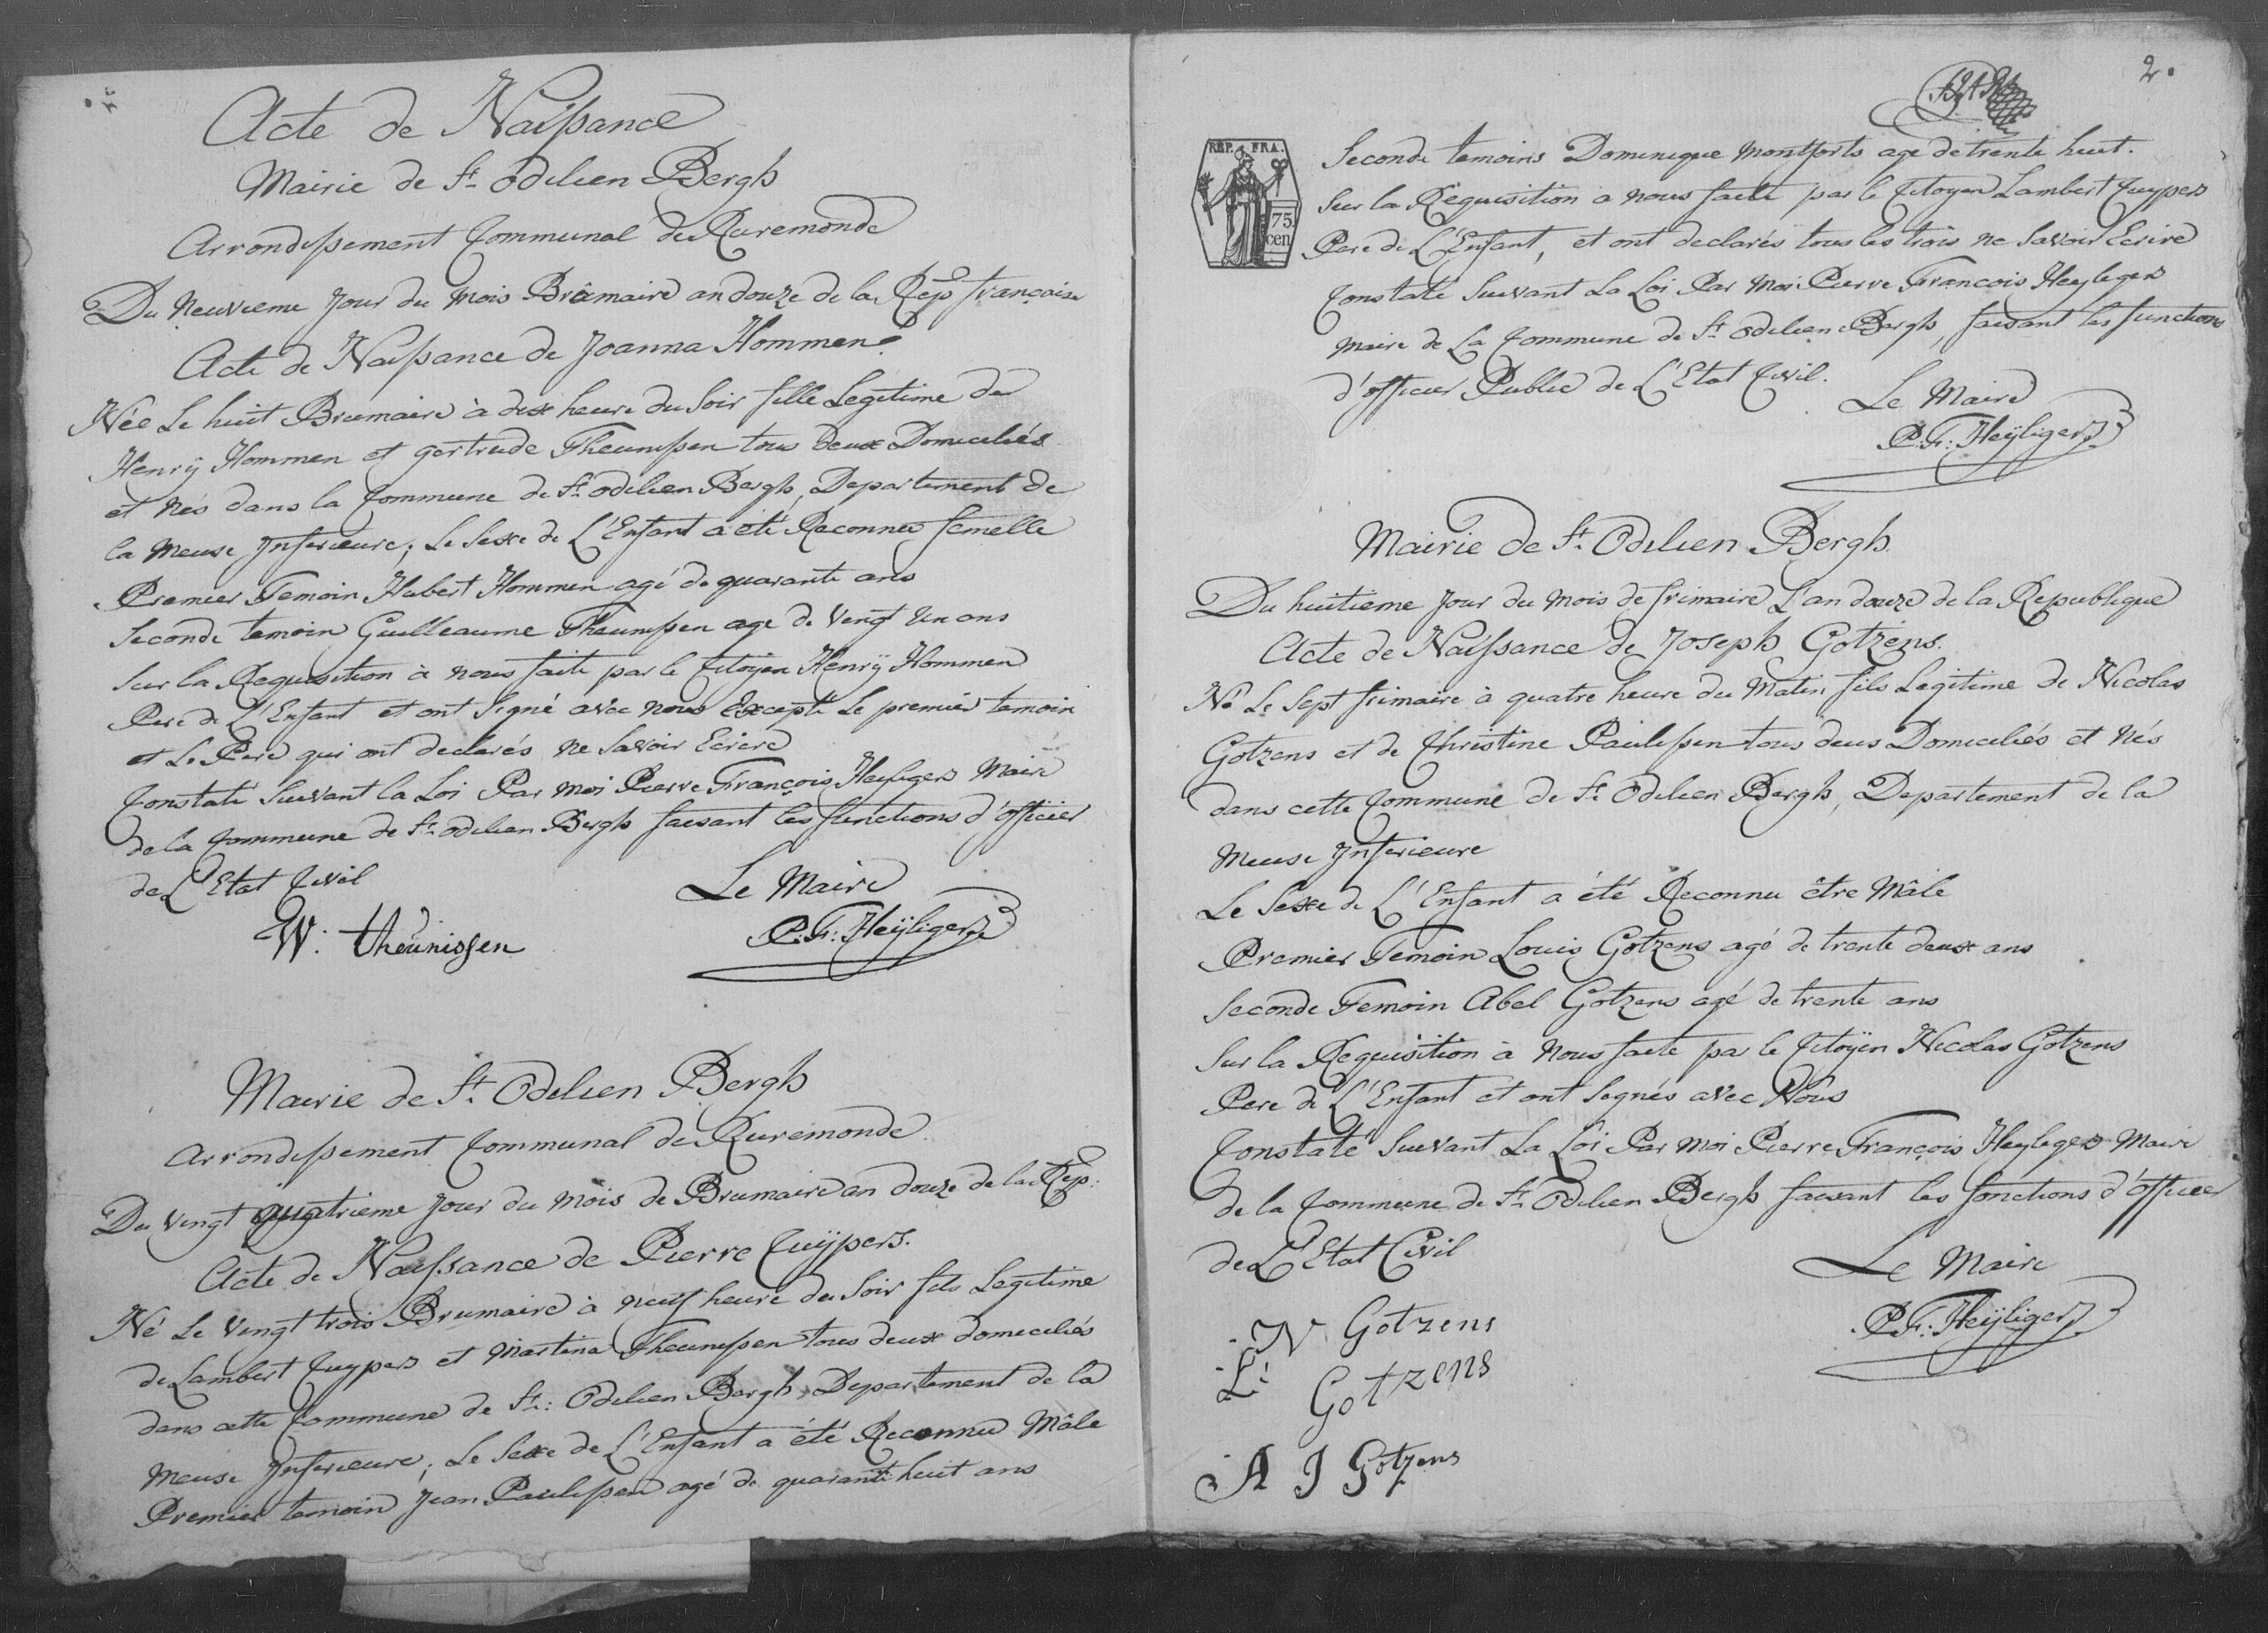 Acte de Naissance
Mairie de St. Odilien Bergh
Arrondissement Communal de Ruremonde
Du Neuvieme Jour du Mois Brumaire an douze de la Rep française
Acte de Naissance de Joanna Hommen
Née Le huit Brumaire à dix heure du Soir fille Legitime de
Henrÿ Hommen et gertrude Theunissen tous deux Domiciliés
et Nés dans la Commune de St. odilien Bergh, Departement de
la Meuse Inferieure, Le Sexe de L'Enfant a été Reconnu femelle
Premier Temoin Hubert Hommen agé de quarante ans
Seconde temoin Guilleaume Theunissen age de Vingt Un ans
Sur la Requisition à nous faite par le Citoÿen Henrÿ Hommen
Pere de L'Enfant et ont Signé avec nous Excepté Le premier temoin
et Le Pere qui ont declarés ne Savoir Ecrire
Constaté Suivant la Loi Par moi Pierre François Heyligers Maire
de la Commune de St. odilien Bergh faisant les functions d'officier
de L'Etat Civil
Le Maire
W: theunissen
P: F: Heÿligers
Mairie de St. Odilien Bergh
Arrondissement Communal de Ruremonde
Du Vingt quatrieme Jour du Mois de Brumaire an douze de la Rep:
Acte de Naissance de Pierre Cuÿpers.
Né Le Vingt trois Brumaire à neuf heure du Soir fils Legitime
de Lambert Cuypers et Martina Theunissen tous deux domiciliés
dans cette Commune de St: Odilien Bergh, Departement de la
Meuse Inferieure, Le Sexe de L'Enfant a été Reconnu Mâle
Premier temoin Jean Paulissen agé de quarante huit ans
2.
REP. FRA.
75
cen
Seconde temoins Dominique Montforts age de trente huit.
Sur la Requisition a nous faite par le Citoyen Lambert Cuypers
Pere de L'Enfant, et ont declarés tous les trois ne Savoir Ecrire
Constaté Suivant La Loi Par Moi Pierre François Heyligers
Maire de La Commune de St. Odilien Bergh, faisant les functions
d'officier Public de L'Etat Civil.
Le Maire
P: F: Heÿligers
Mairie de St. Odilien Bergh
Du huitieme Jour du Mois de frimaire L'an douze de la Republique
Acte de Naissance de Joseph Gotzens.
Né Le Sept frimaire à quatre heure du Matin fils Legitime de Nicolas
Gotzens et de Christine Paulissen tous deus Domiciliés et Nés
dans cette Commune de St. Odilien Bergh, Departement de la
Meuse Inferieure
Le Sexe de L'Enfant a été Reconnu être Mâle
Premier Temoin Louis Gotzens agé de trente deux ans
Seconde Temoin Abel Gotzens agé de trente ans
Sur la Requisition à Nous faite par le Citoÿen Nicolas Gotzens
Pere de L'Enfant et ont Signés avec Nous
Constaté Suivant La Loi Par moi Pierre François Heyligers Maire
de la Commune de St. Odilien Bergh faisant les fonctions d'Officier
de L'Etat Civil
Le Maire
N Gotzens
P: F: Heÿligers
L: Gotzens
A J Gotzens